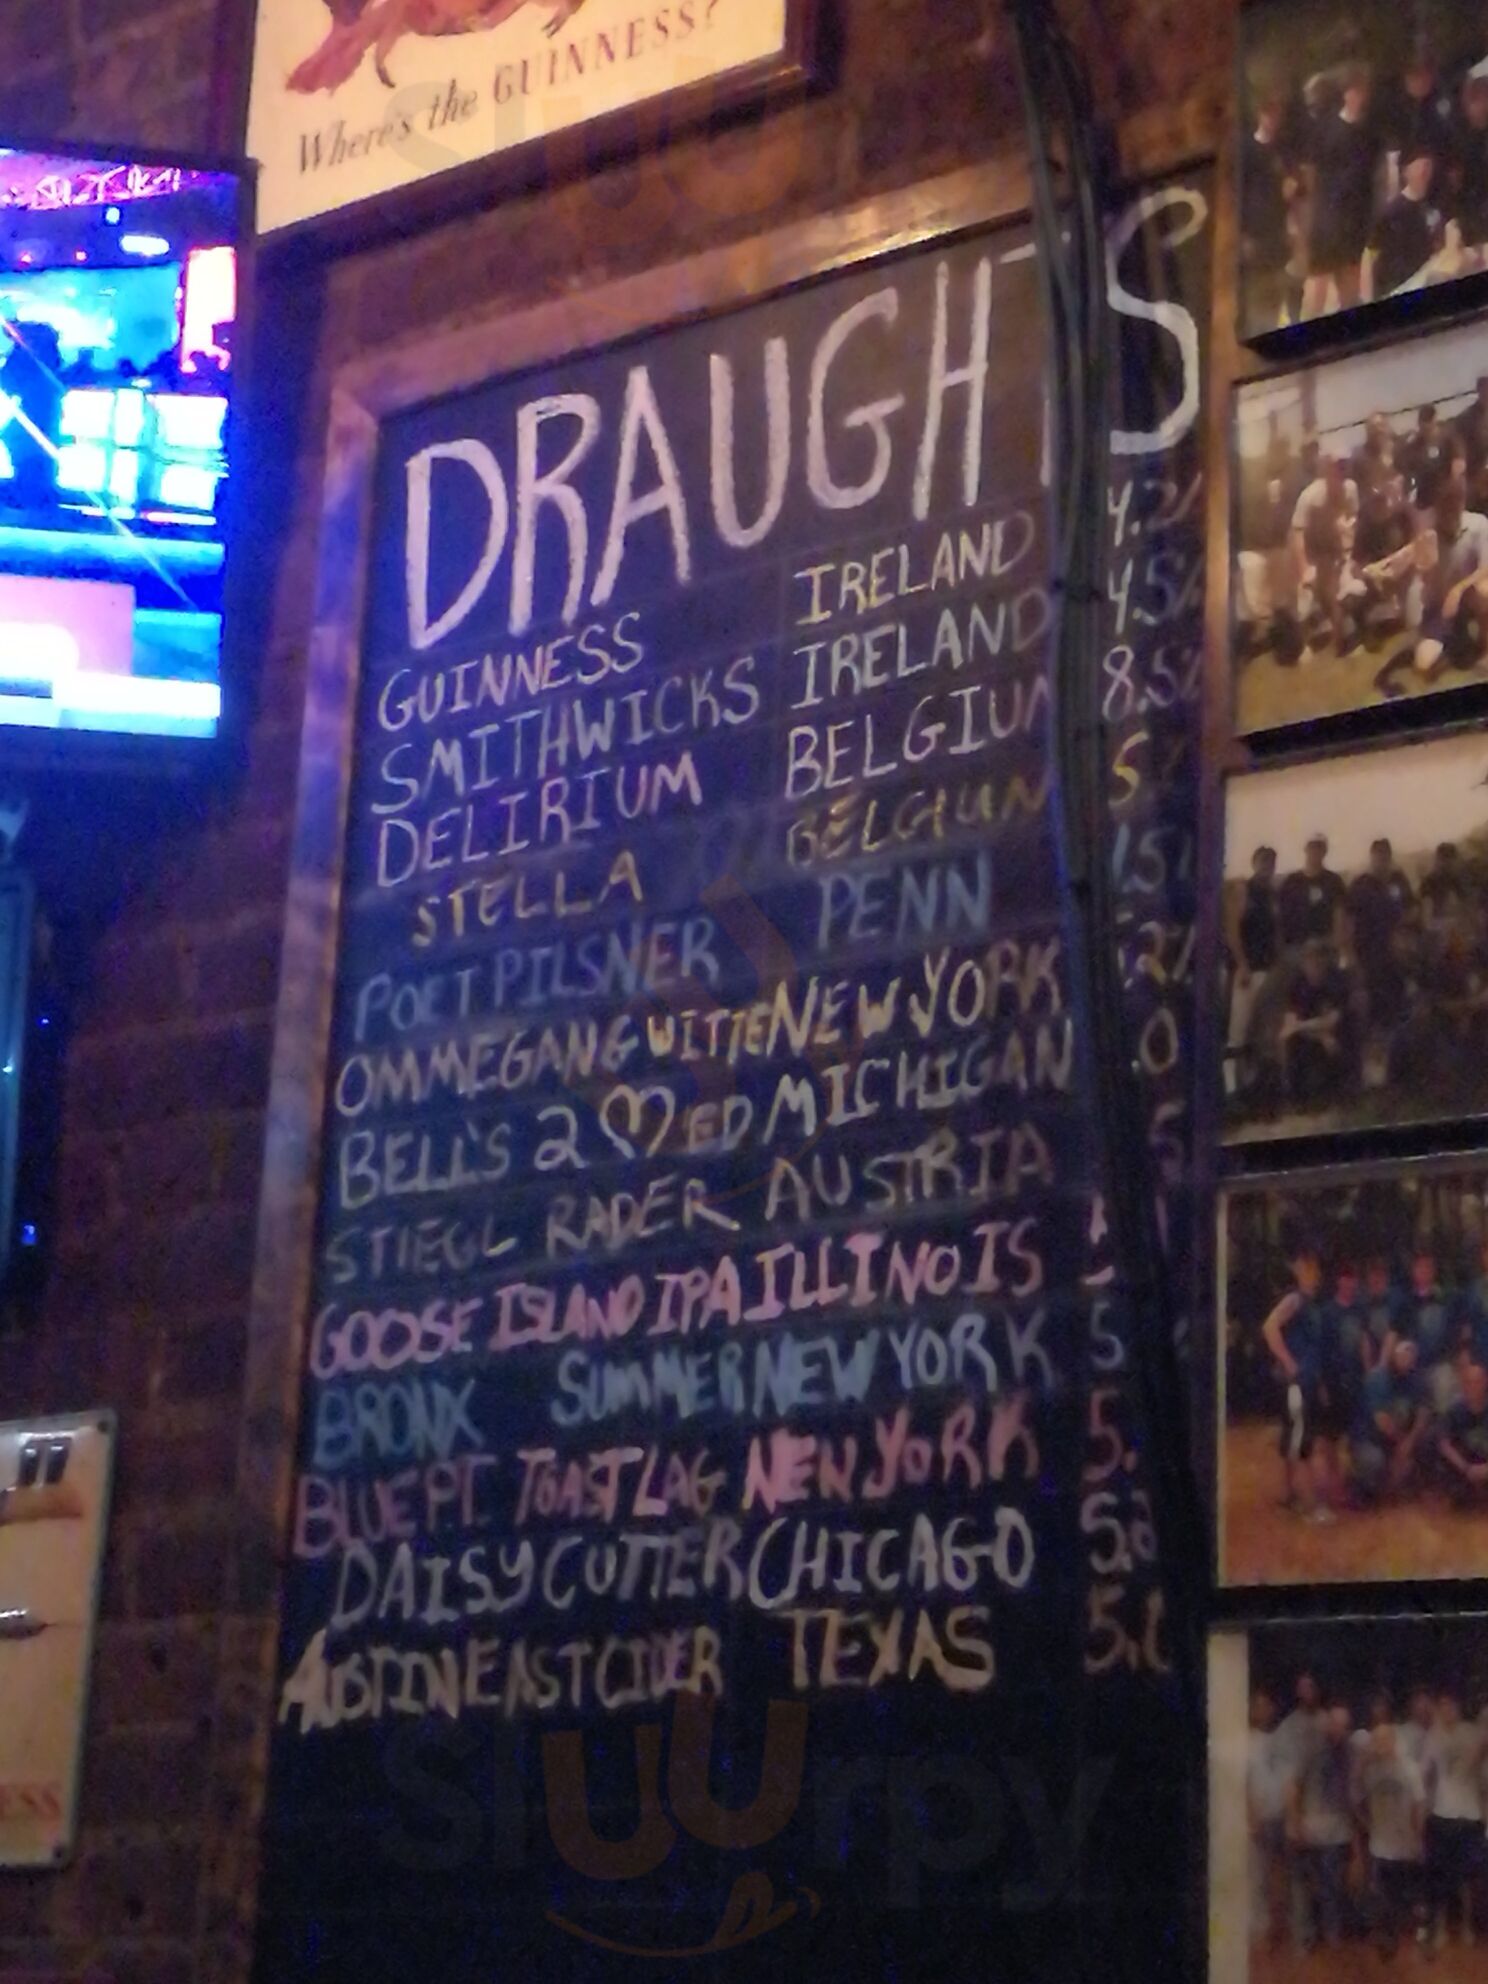 Where's the GUINNESS?
DRAUGHTS
GUINNESS IRELAND 4.2%
SMITHWICKS IRELAND 4.5%
DELIRIUM BELGIUM 8.5%
STELLA BELGIUM 5
POET PILSNER PENN
OMMEGANG WITTE NEW YORK
BELL'S 2 ♡ED MICHIGAN
STIEGL RADER AUSTRIA
GOOSE ISLAND IPA ILLINOIS
BRONX SUMMER NEW YORK 5
BLUE PT. TOAST LAG NEW YORK 5.
DAISY CUTTER CHICAGO 5.2
AUSTIN EAST CIDER TEXAS
sluurpy